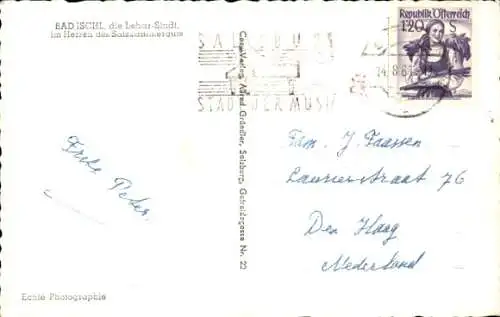 BAD ISCHL, die Lehar-Stadt,
im Herzen des Salzkammergute
SALZBURG
STADT DER MUSIK
14.8.6
Republik Österreich
1.20 S
Cosy-Verlag, Alfred Gründler, Salzburg, Getreidegasse Nr. 22
Fam. J. Faassen
Laurierstraat 76
Den Haag
Nederland
Peter.
Echte Photographie